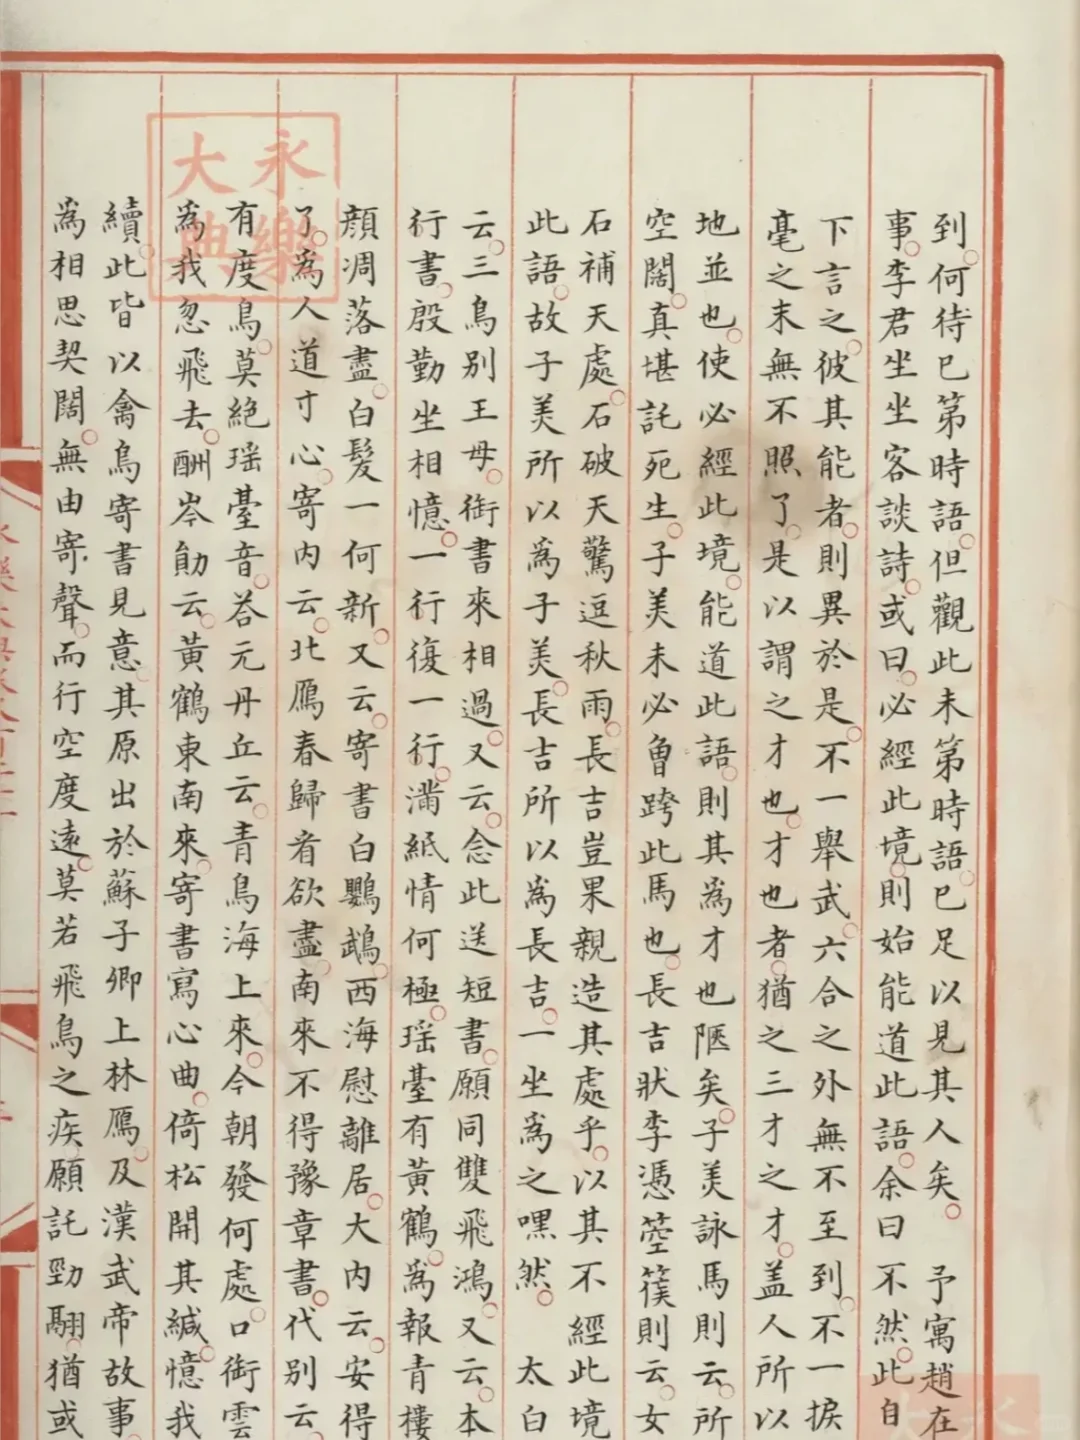 到何待已第時語但觀此未第時語已足以見其人矣　予寓趙在
事李君坐坐客談詩或曰必經此境則始能道此語余曰不然此自
下言之彼其能者則異於是不一舉武六合之外無不至到不一捩
毫之末無不照了是以謂之才也才也者猶之三才之才蓋人所以
地並也使必經此境能道此語則其為才也陋矣子美詠馬則云所
空闊真堪託死生子美未必曾跨此馬也長吉狀李憑箜篌則云女
石補天處石破天驚逗秋雨長吉豈果親造其處乎以其不經此境
此語故子美所以為子美長吉所以為長吉一坐為之嘿然　太白
云三鳥別王母銜書來相過又云念此送短書願同雙飛鴻又云本
行書殷勤坐相憶一行復一行滿紙情何極瑤臺有黃鶴為報青樓
顏凋落盡白髮一何新又云寄書白鸚鵡西海慰離居大內云安得
了為人道寸心寄內云北鴈春歸看欲盡南來不得豫章書代別云
有度鳥莫絕瑤臺音荅元丹丘云青鳥海上來今朝發何處口銜雲
為我忽飛去酬岑勛云黃鶴東南來寄書寫心曲倚松開其緘憶我
續此皆以禽鳥寄書見意其原出於蘇子卿上林鴈及漢武帝故事
為相思契闊無由寄聲而行空度遠莫若飛鳥之疾願託勁翮猶或
永樂
大典